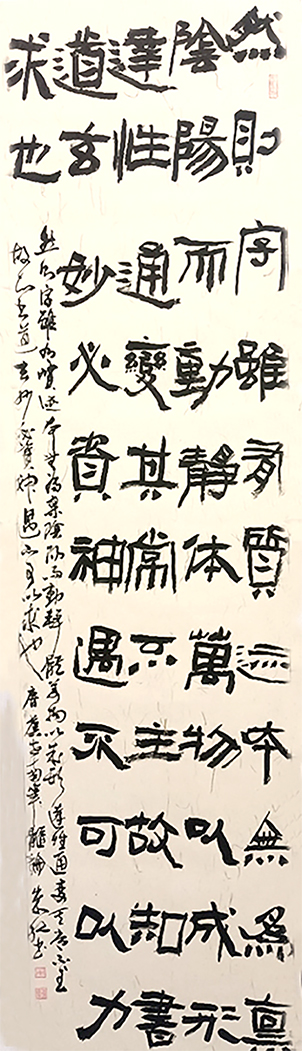 然則字雖有質迹本無爲稟
陰陽而動靜体萬物以成形
達性通變其常不主故知書
道玄妙必資神遇不可以力
求也
然則字雖有質迹本無為稟陰陽而動靜體萬物以成形達性通變其常不主
故知書道玄妙必資神遇不可以力求也 唐虞世南筆髓論 書